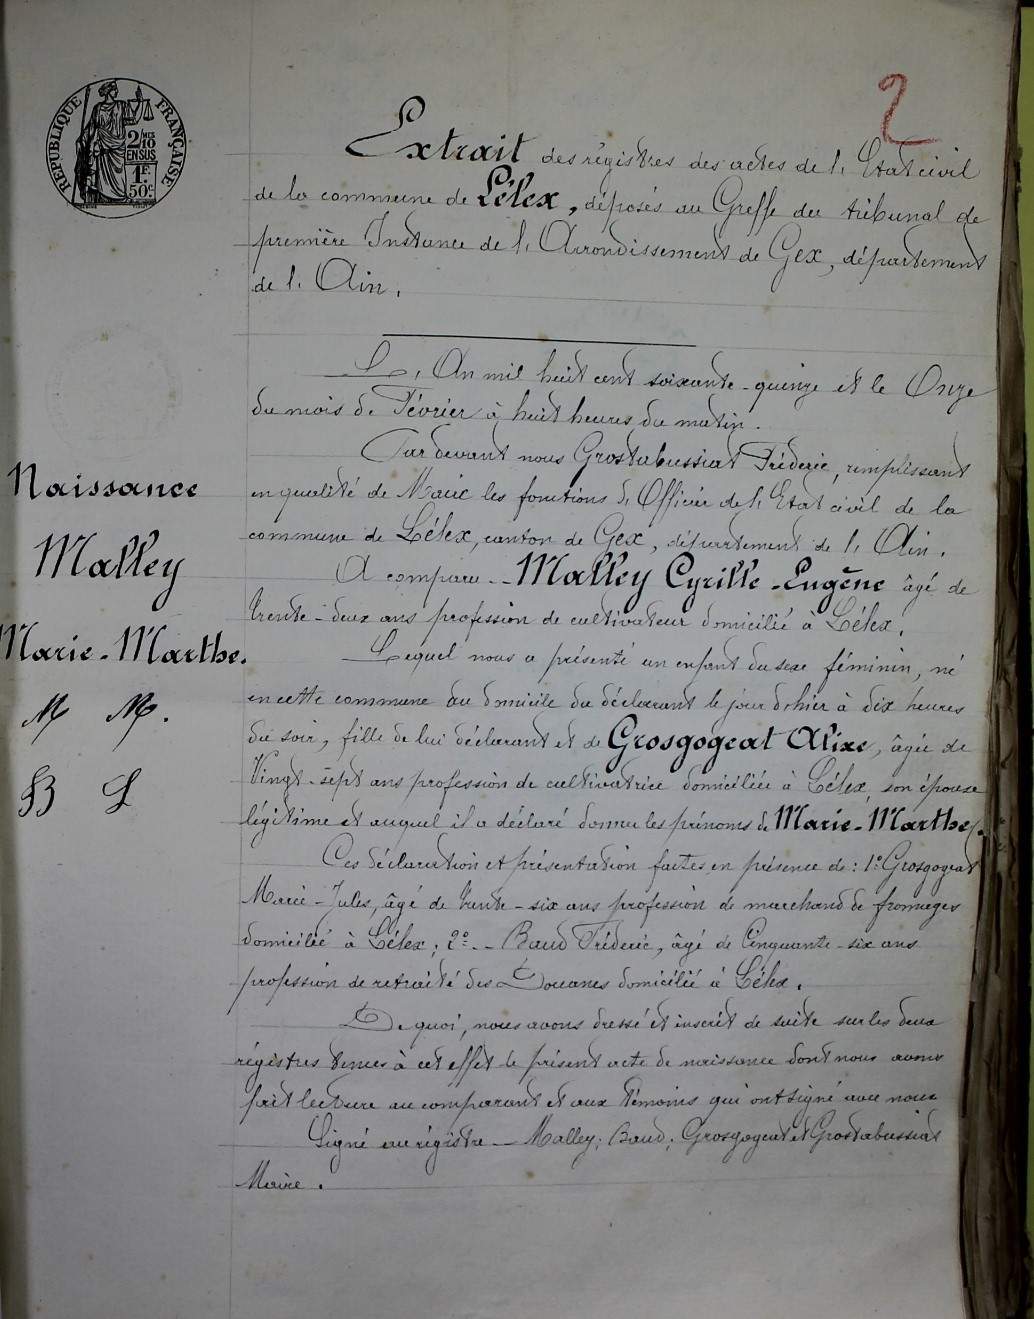 2
RÉPUBLIQUE FRANÇAISE
2/10 MES
EN SUS
1F.
50c
Extrait des régistres des actes de l, Etat civil
de la commune de Lélex, déposés au Greffe du tribunal de
première Instance de l, Arrondissement de Gex, département
de l, Ain.
L, An mil huit cent soixante-quinze et le Onze
du mois de Février à huit heures du matin.
Par devant nous Grostabussiat Fréderic, remplissant
en qualité de Maire les fonctions d, Officier de l, Etat civil de la
commune de Lélex, canton de Gex, département de l, Ain.
A comparu - Malley Cyrille-Eugène âgé de
trente-deux ans profession de cultivateur domicilié à Lélex.
Lequel nous a présenté un enfant du sexe féminin, né
en cette commune au domicile du déclarant le jour d'hier à dix heures
du soir, fille de lui déclarant et de Grosgogeat Alixe, âgée de
Vingt-sept ans profession de cultivatrice domiciliée à Lélex, son épouse
légitime et auquel il a déclaré donner les prénoms de Marie-Marthe.
Ces déclaration et présentation faites en présence de: 1º Grosgogeat
Marie-Jules, âgé de trente-six ans profession de marchand de fromages
domicilié à Lélex; 2º - Baud Fréderic, âgé de Cinquante-six ans
profession de retraité des Douanes domicilié à Lélex.
De quoi, nous avons dressé et inscrit de suite sur les deux
régistres tenus à cet effet le présent acte de naissance dont nous avons
fait lecture au comparant et aux témoins qui ont signé avec nous
Signé au régistre - Malley; Baud; Grosgogeat et Grostabussiat
Maire.
Naissance
Malley
Marie-Marthe.
M M.
B L